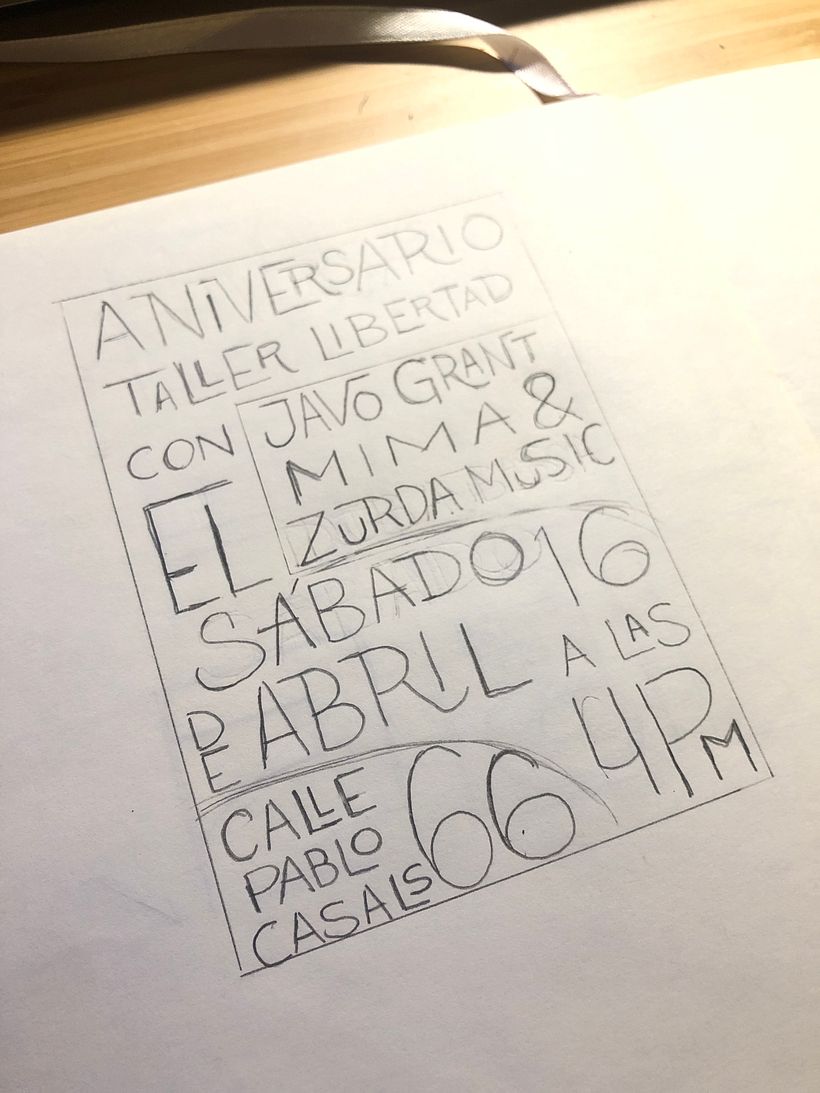 ANIVERSARIO
TALLER LIBERTAD
CON
JAVO GRANT
MIMA &
ZURDA MUSIC
EL
SÁBADO 16
DE ABRIL A LAS
4PM
CALLE
PABLO
CASALS
66